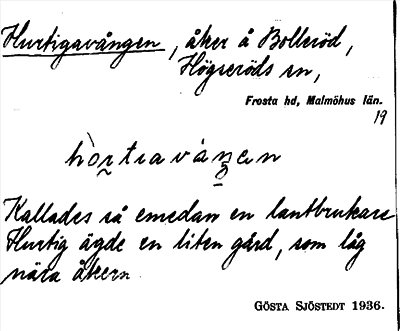 Hurtigavången, åker å Bolleröd,
Högseröds sn,
Frosta hd, Malmöhus län.
19
Kallades så emedan en lantbrukare
Hurtig ägde en liten gård, som låg
nära åkern.
GÖSTA SJÖSTEDT 1936.